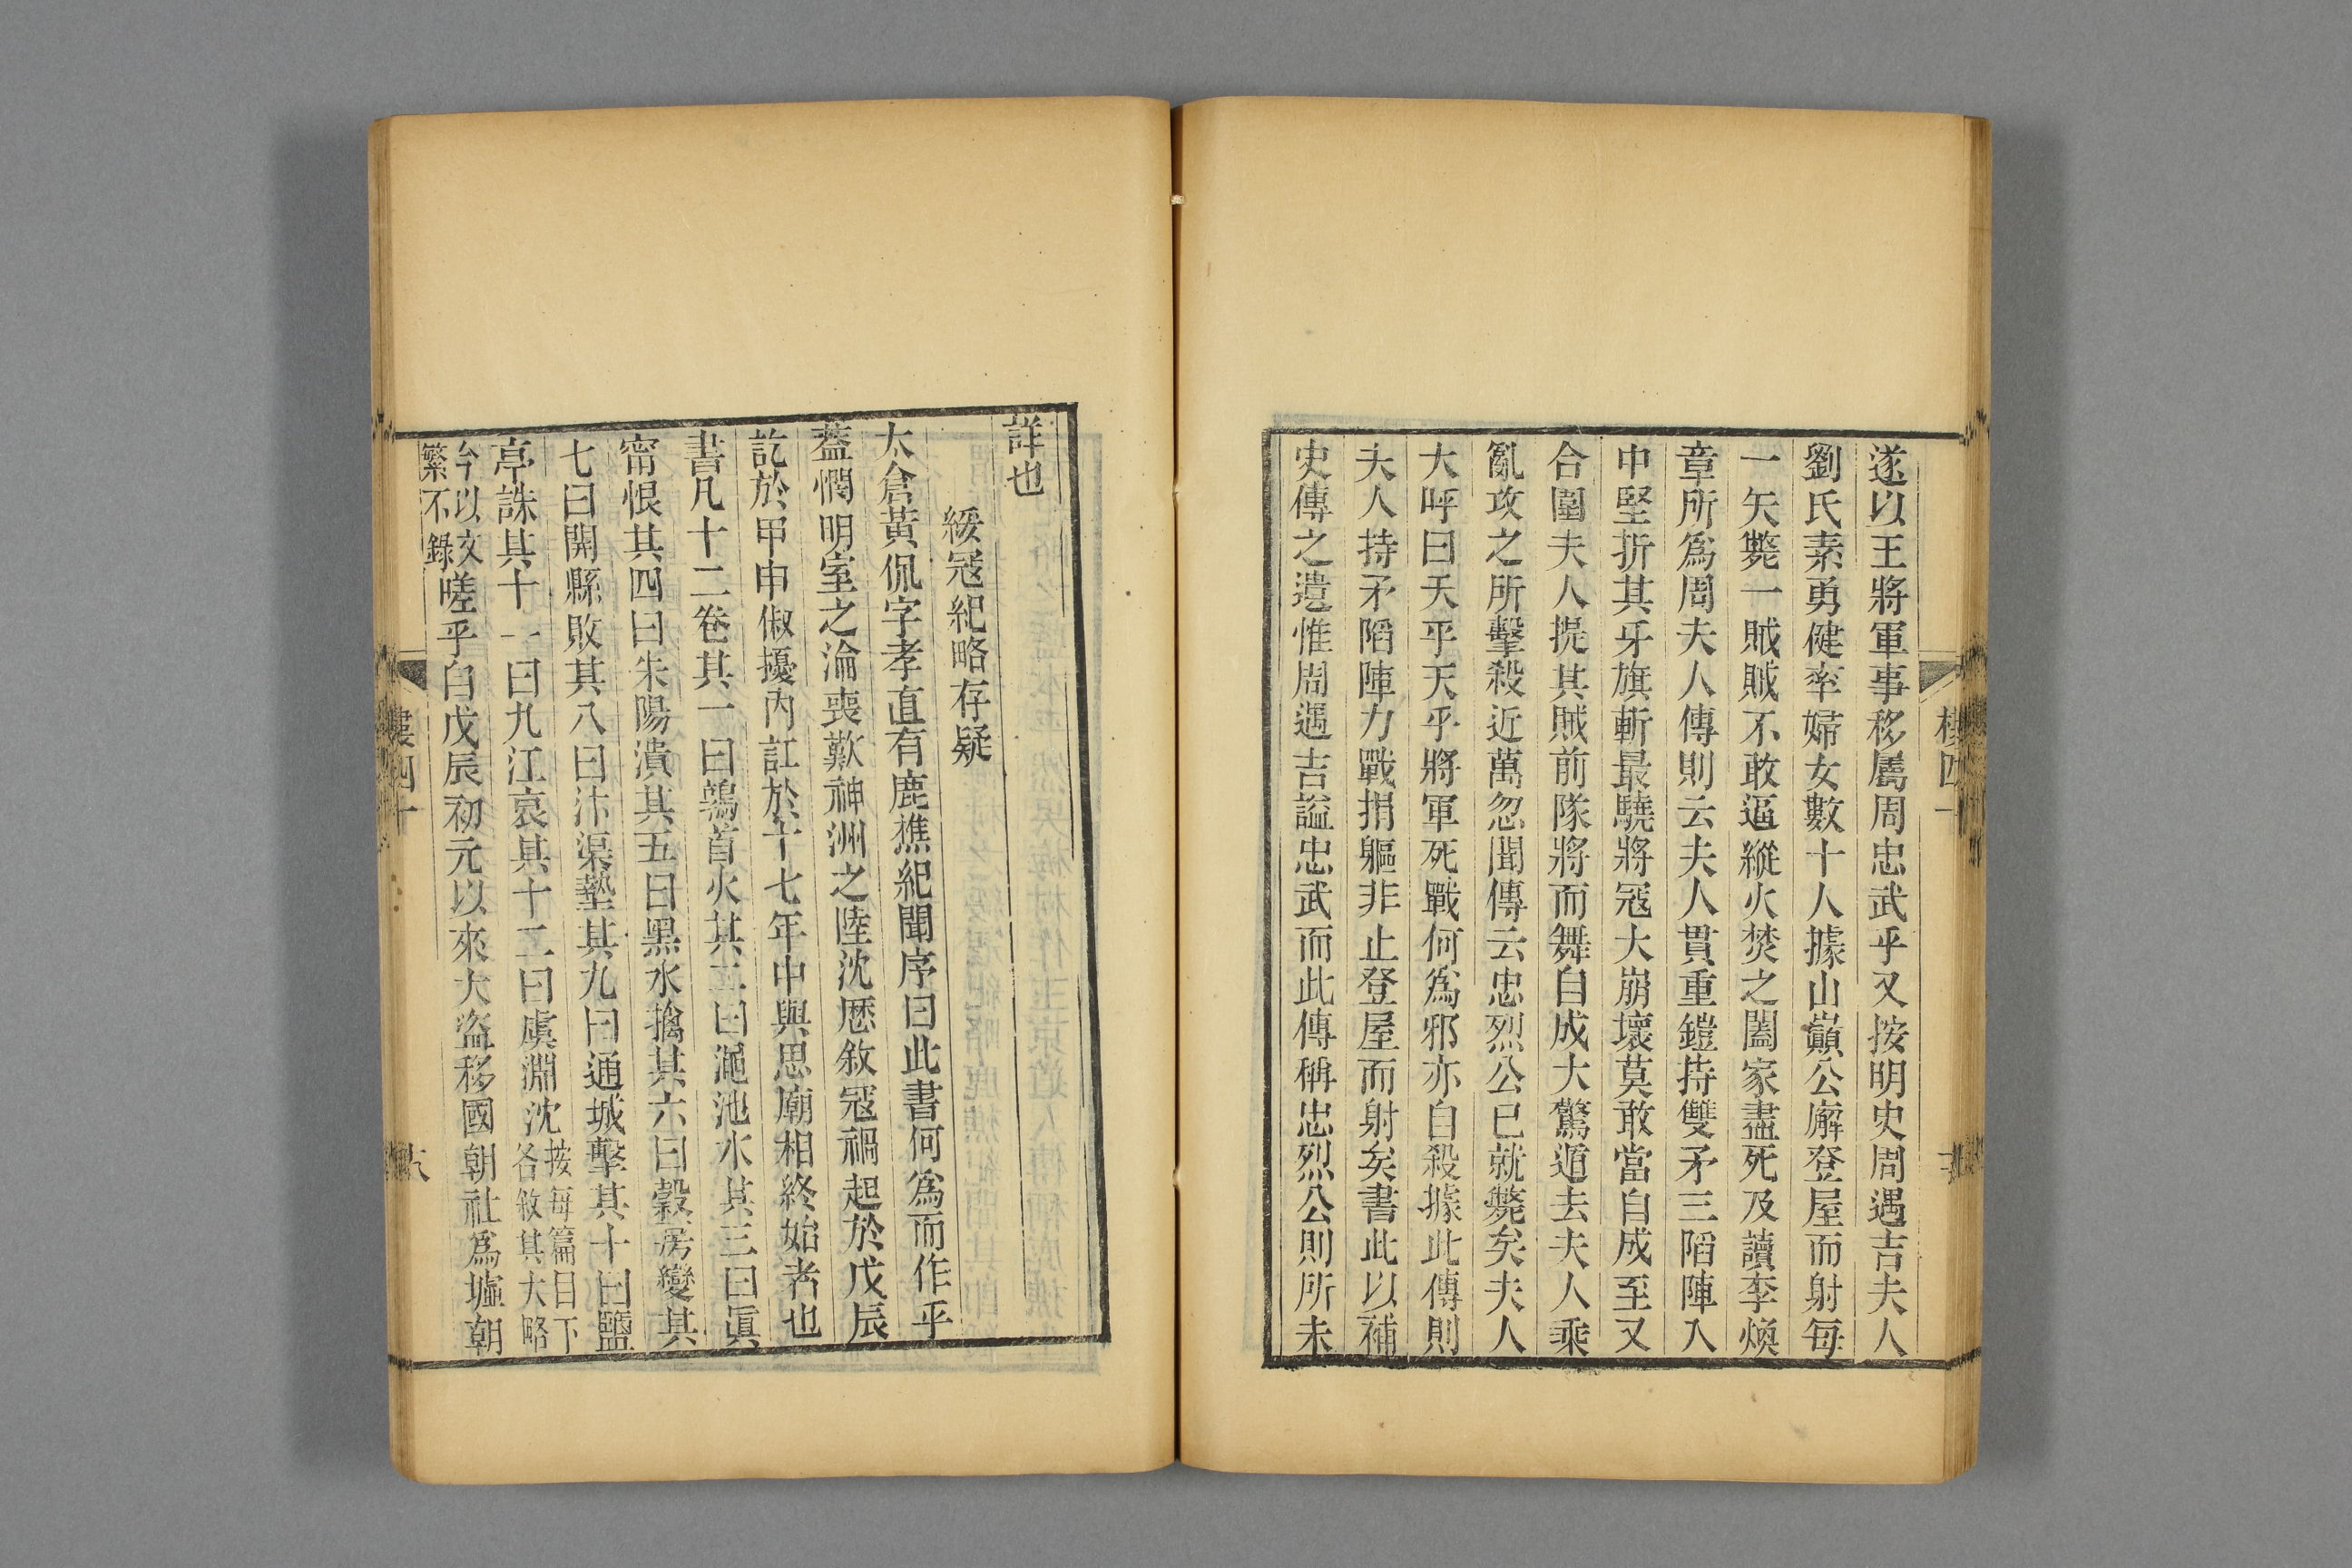 遂以王將軍事移屬周忠武乎又按明史周遇吉夫人
劉氏素勇健率婦女數十人據山巔公廨登屋而射每
一矢斃一賊賊不敢逼縱火焚之闔家盡死及讀李煥
章所爲周夫人傳則云夫人貫重鎧持雙矛三陷陣入
中堅折其牙旗斬最驍將冦大崩壞莫敢當自成至又
合圍夫人提其賊前隊將而舞自成大驚遁去夫人乘
亂攻之所擊殺近萬忽聞傳云忠烈公已就斃矣夫人
大呼曰天乎天乎將軍死戰何爲邪亦自殺據此傳則
夫人持矛陷陣力戰捐軀非止登屋而射矣書此以補
史傳之遺惟周遇吉謚忠武而此傳稱忠烈公則所未
詳也
綏冦紀略存疑
太倉黃侃字孝直有鹿樵紀聞序曰此書何爲而作乎
蓋憫明室之淪喪歎神洲之陸沈厯敘冦禍起於戊辰
訖於甲申俶擾內訌於十七年中與思廟相終始者也
書凡十二卷其一曰鶉首火其二曰澠池水其三曰眞
甯恨其四曰朱陽潰其五曰黑水擒其六曰穀房變其
七曰開縣敗其八曰汴渠墊其九曰通城擊其十曰鹽
亭誅其十一曰九江哀其十二曰虞淵沈按每篇目下
各敘其大略
今以文
繁不錄嗟乎自戊辰初元以來大盗移國朝社爲墟朝
樓四十
六